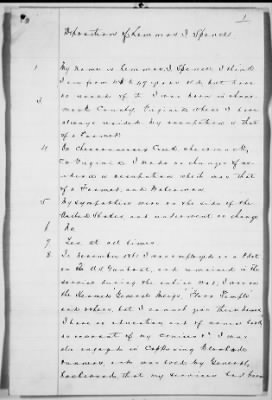 1
Deposition of Lemmon I Spence
1
My name is Lemmon I. Spence I think
I am from to 49 years old, but have
no record of it I was born in
County, Virginia where I have
3
always resided. My occupation is that
of a Farmer
4
In Creek
Co Virginia I made no change of
residence or occupation which was that
of a Farmer, and Waterman
5
My sympathies were on the side of the
United States and underwent no change
6
No
7
Yes at all times
8
In November 1861 I was employed as a Pilot
on the U.S Gunboat, and remained in the
service during the entire War, I was on
the Steamers
and others, but I cannot give their names
I have no education and of course kept
no account of my services I was
also engaged in Capturing Blockade
runners, and was told by General
that my services had been